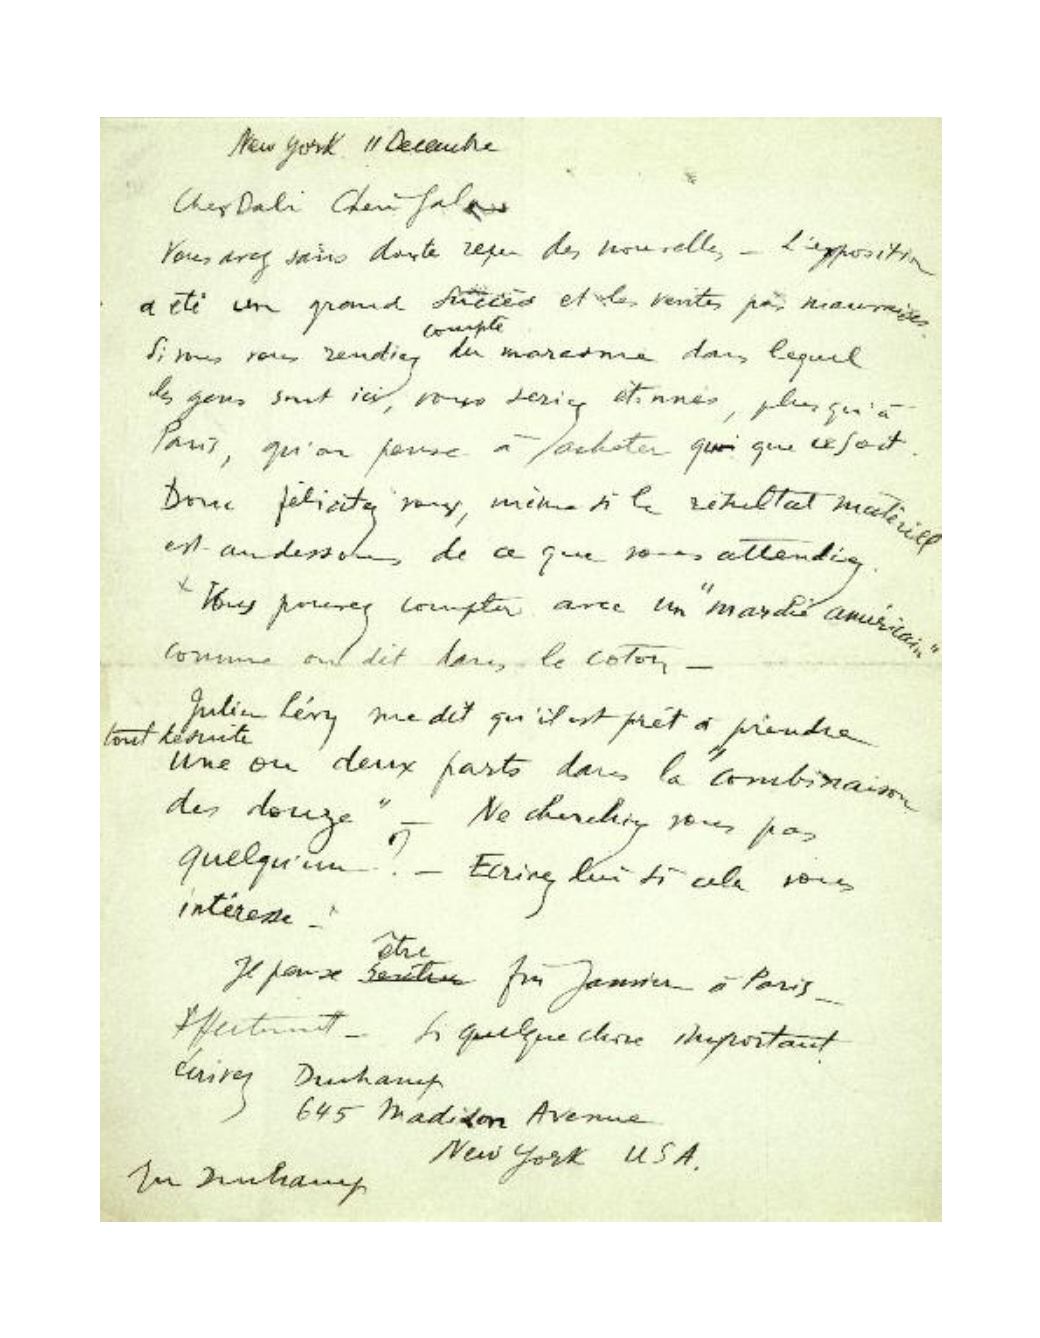 New York 11 Decembre
Cher Dali Chère Gala
Vous avez sans doute reçu des nouvelles — L'exposition
a été un grand succès et les ventes pas mauvaises.
Si vous vous rendiez compte du marasme dans lequel
les gens sont ici, vous seriez étonnés, plus qu'à
Paris, qu'on pense à acheter quoi que ce soit.
Donc félicitez vous, même si le résultat matériel
est audessous de ce que vous attendiez.
Vous pouvez compter avec un "marché américain"
comme on dit dans le coton —
Julien Lévy me dit qu'il est prêt à prendre
tout desuite
une ou deux parts dans la "combinaison
des douze" — Ne cherchiez vous pas
quelqu'un? — Ecrivez lui si cela vous
intéresse —
Je pense être fin Janvier à Paris —
Affectment — Si quelque chose important
écrivez Duchamp
645 Madison Avenue
New York USA.
Duchamp